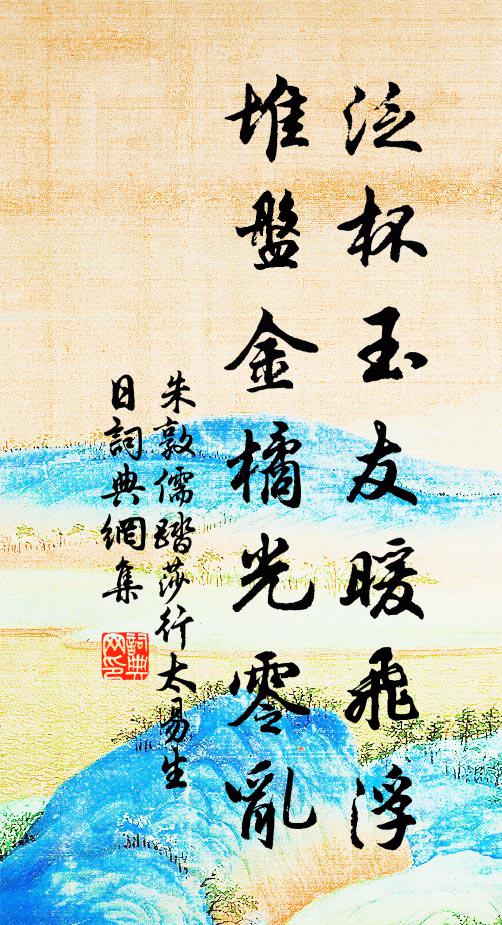 泛杯玉友暖飛浮
堆盤金橘光零亂
朱敦儒踏莎行太易生
日詞典網集
詞典網印